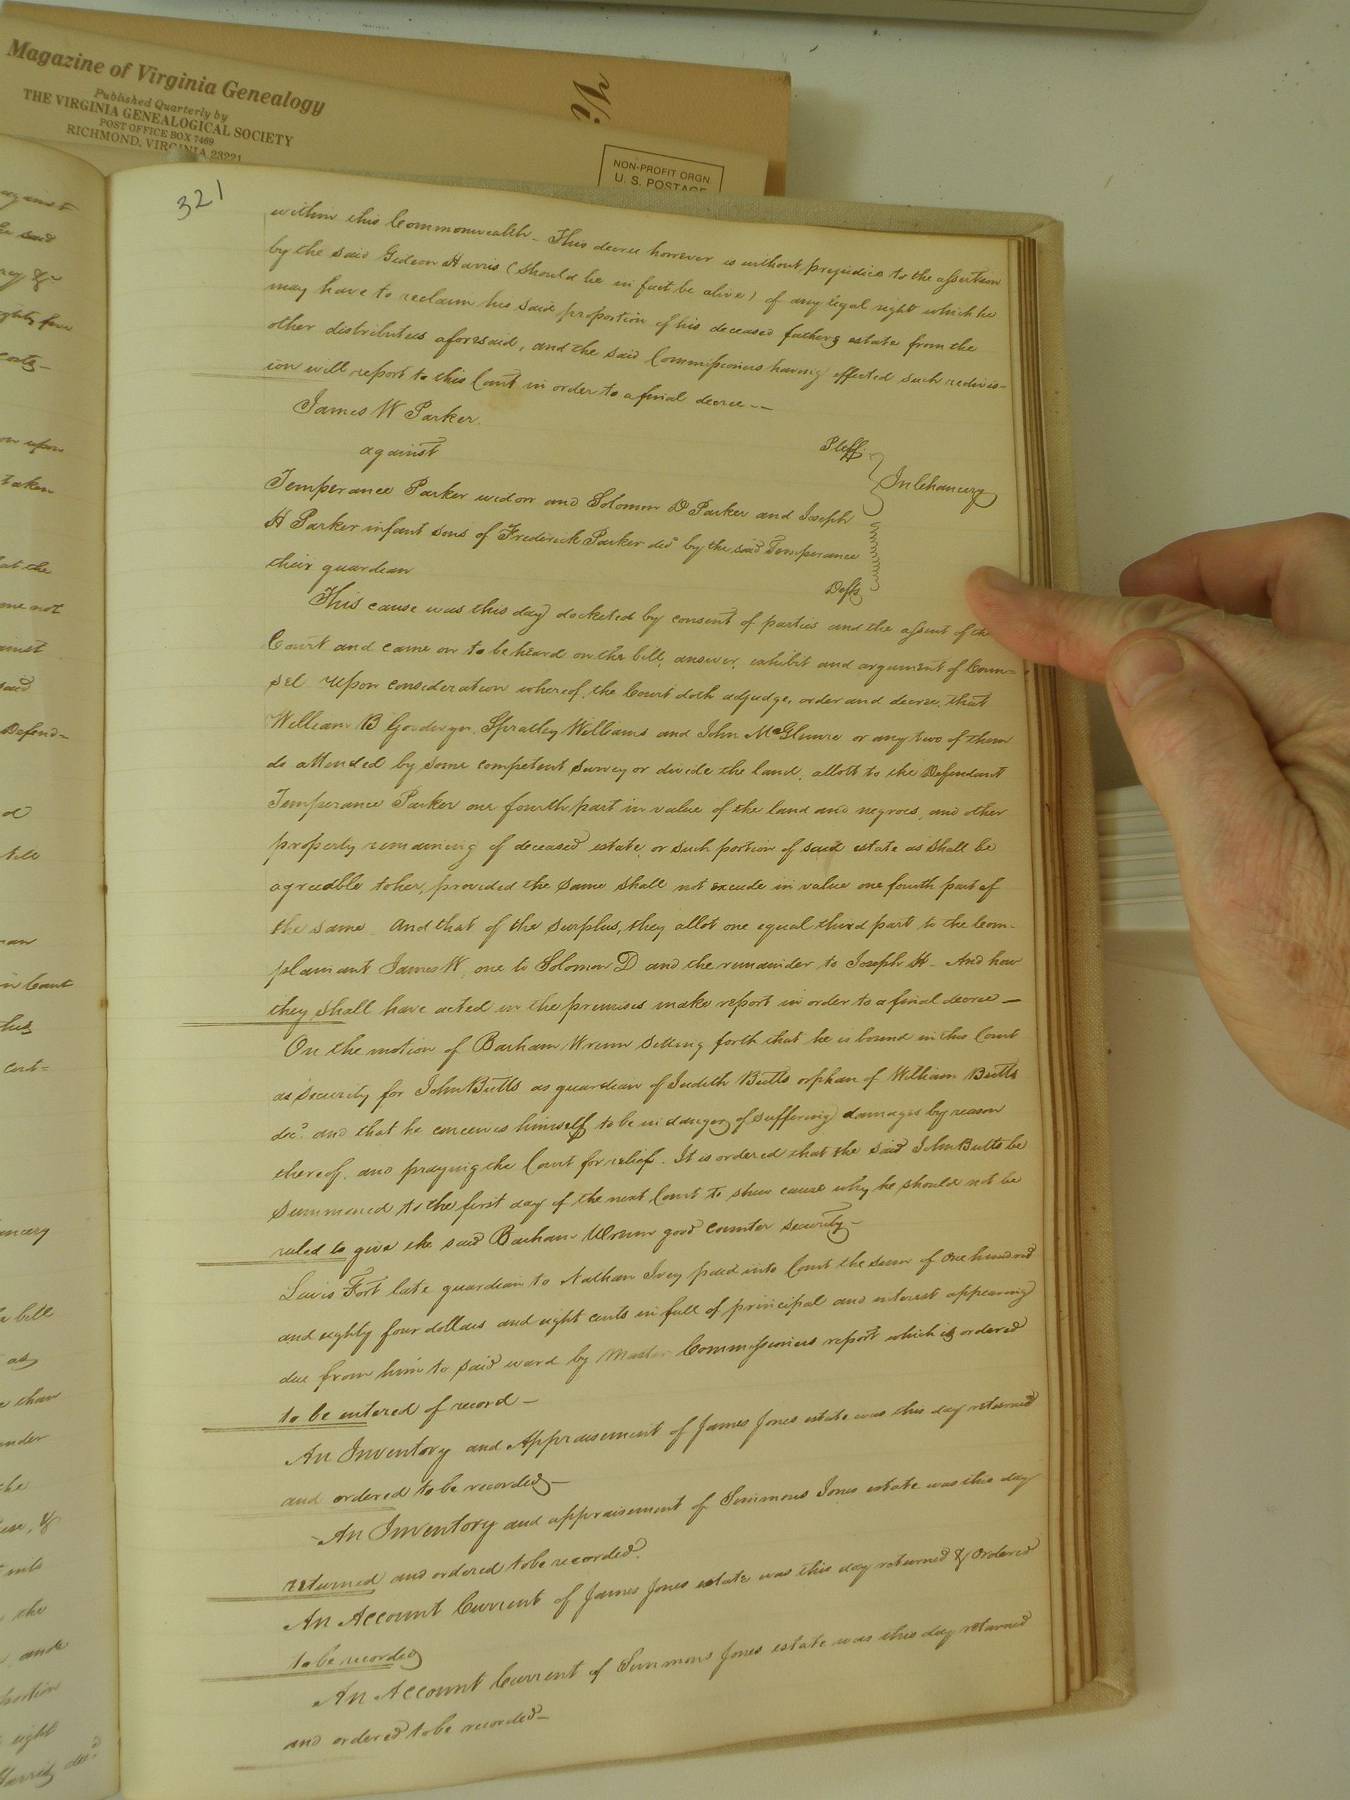 Magazine of Virginia Genealogy
Published Quarterly by
THE VIRGINIA GENEALOGICAL SOCIETY
POST OFFICE BOX 7469
RICHMOND, VIRGINIA 23221
Vi
NON-PROFIT ORGN.
U. S. POSTAGE
321
within this Commonwealth - This decree however is without prejudice to the assertion
by the said Gideon Harris (should he in fact be alive) of any legal right which he
may have to reclaim his said proportion of his deceased fathers estate from the
other distributees aforesaid, and the said Commissioners having effected such redivis-
ion will report to this Court in order to a final decree --
James W Parker. Pleff.
against
In Chancery
Temperance Parker widow and Solomon D Parker and Joseph
H Parker infant sons of Frederick Parker decd by the said Temperance
their guardian Defts
This cause was this day docketed by consent of parties and the assent of the
Court and came on to be heard on the bill, answer, exhibit and argument of Coun=
sel Upon consideration whereof, the Court doth adjudge, order and decree, that
William B Goodwyn, Spratley Williams and John McGlemre or any two of them
do attended by some competent surveyor divide the land, allott to the Defendant
Temperance Parker one fourth part in value of the land and negroes, and other
property remaining of deceased estate, or such portion of said estate as shall be
agreeable to her, provided the same shall not exceede in value one fourth part of
the same And that of the surplus, they allot one equal third part to the Com-
plainant James W, one to Solomon D and the remainder to Joseph H - And how
they shall have acted in the premises make report in order to a final decree —
On the motion of Barham Wrenn setting forth that he is bound in this Court
as security for John Butts as guardian of Judith Butts orphan of William Butts
decd. and that he conceives himself to be in danger of suffering damages by reason
thereof, and praying the Court for relief. It is ordered that the said John Butts be
summoned to the first day of the next Court to shew cause why he should not be
ruled to give the said Barham Wrenn good counter security -
Lewis Fort late guardian to Nathan Ivey paid into Court the sum of One hundred
and eighty four dollars and eight cents in full of principal and interest appearing
due from him to said ward by Master Commissioners report which is ordered
to be entered of record -
An Inventory and Appraisement of James Jones estate was this day returned
and ordered to be recorded -
An Inventory and appraisement of Simmons Jones estate was this day
returned and ordered to be recorded.
An Account Current of James Jones estate was this day returned & Ordered
to be recorded
An Account Current of Simmons Jones estate was this day returned
and ordered to be recorded -